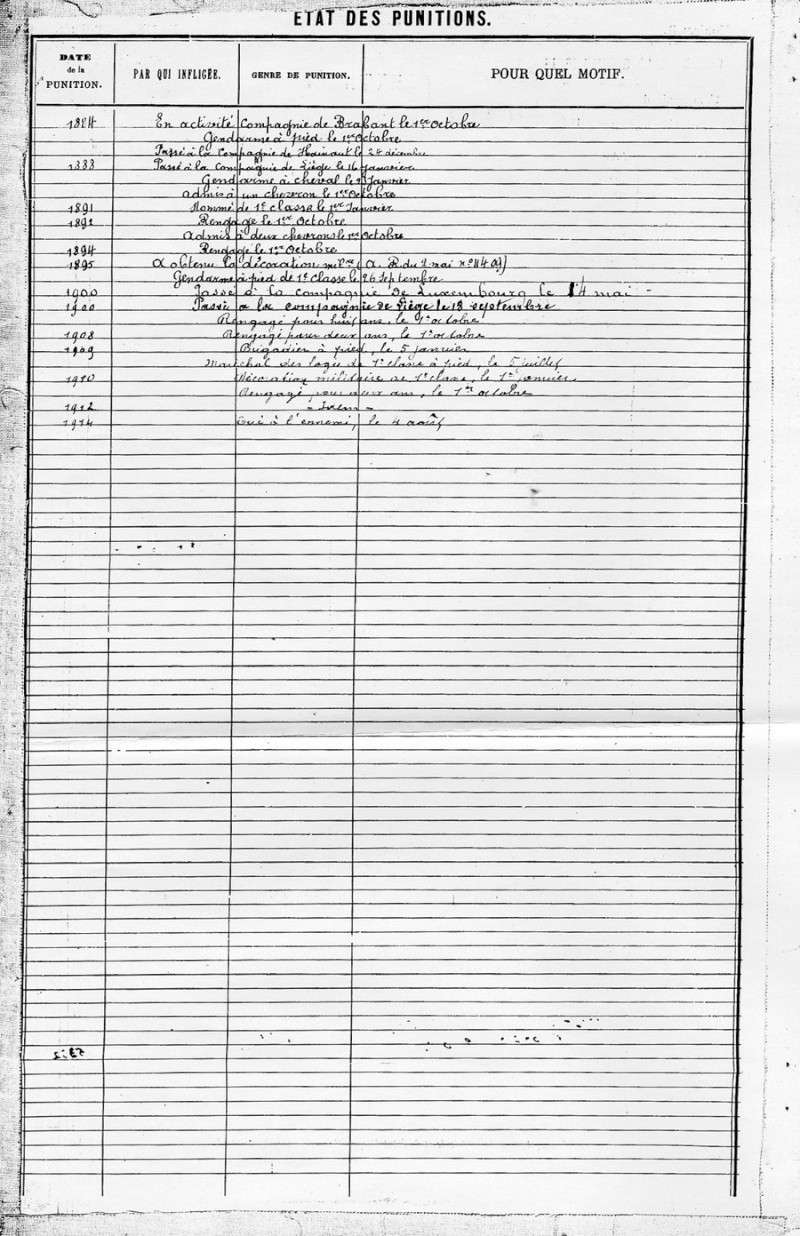 ETAT DES PUNITIONS.
DATE de la PUNITION.
PAR QUI INFLIGÉE.
GENRE DE PUNITION.
POUR QUEL MOTIF.
1884 En activité Compagnie de Brabant le 1er Octobre
Gendarme à pied le 1er Octobre
Passé à la Compagnie de Hainaut le 28 décembre
Passé à la Compagnie de Liège le 16 Janvier
Gendarme à cheval le Janvier
admis à un chevron le 1er Octobre
1891 Nommé de 1e classe le 1er Janvier
Rengagé le 1er Octobre
admis à deux chevrons le 1er Octobre
1894 Rengagé le 1er Octobre
1895 A obtenu la décoration milre (A. R. du 2 mai no
Gendarme à pied de 1e classe le 26 Septembre
1900 Passé à la compagnie de Luxembourg le 14 mai -
1900 Passé à la compagnie de Liège le 13 septembre
Rengagé pour huit ans, le 1er octobre
1908 Rengagé pour deux ans, le 1er octobre
1909 Brigadier à pied, le 5 janvier
Maréchal des logis de 1e classe à pied, le 5 juillet
1910 Décoration militaire de 1e classe, le 1er janvier.
Rengagé, pour deux ans, le 1er octobre
1912 - Idem -
1914 Tué à l'ennemi, le 4 août